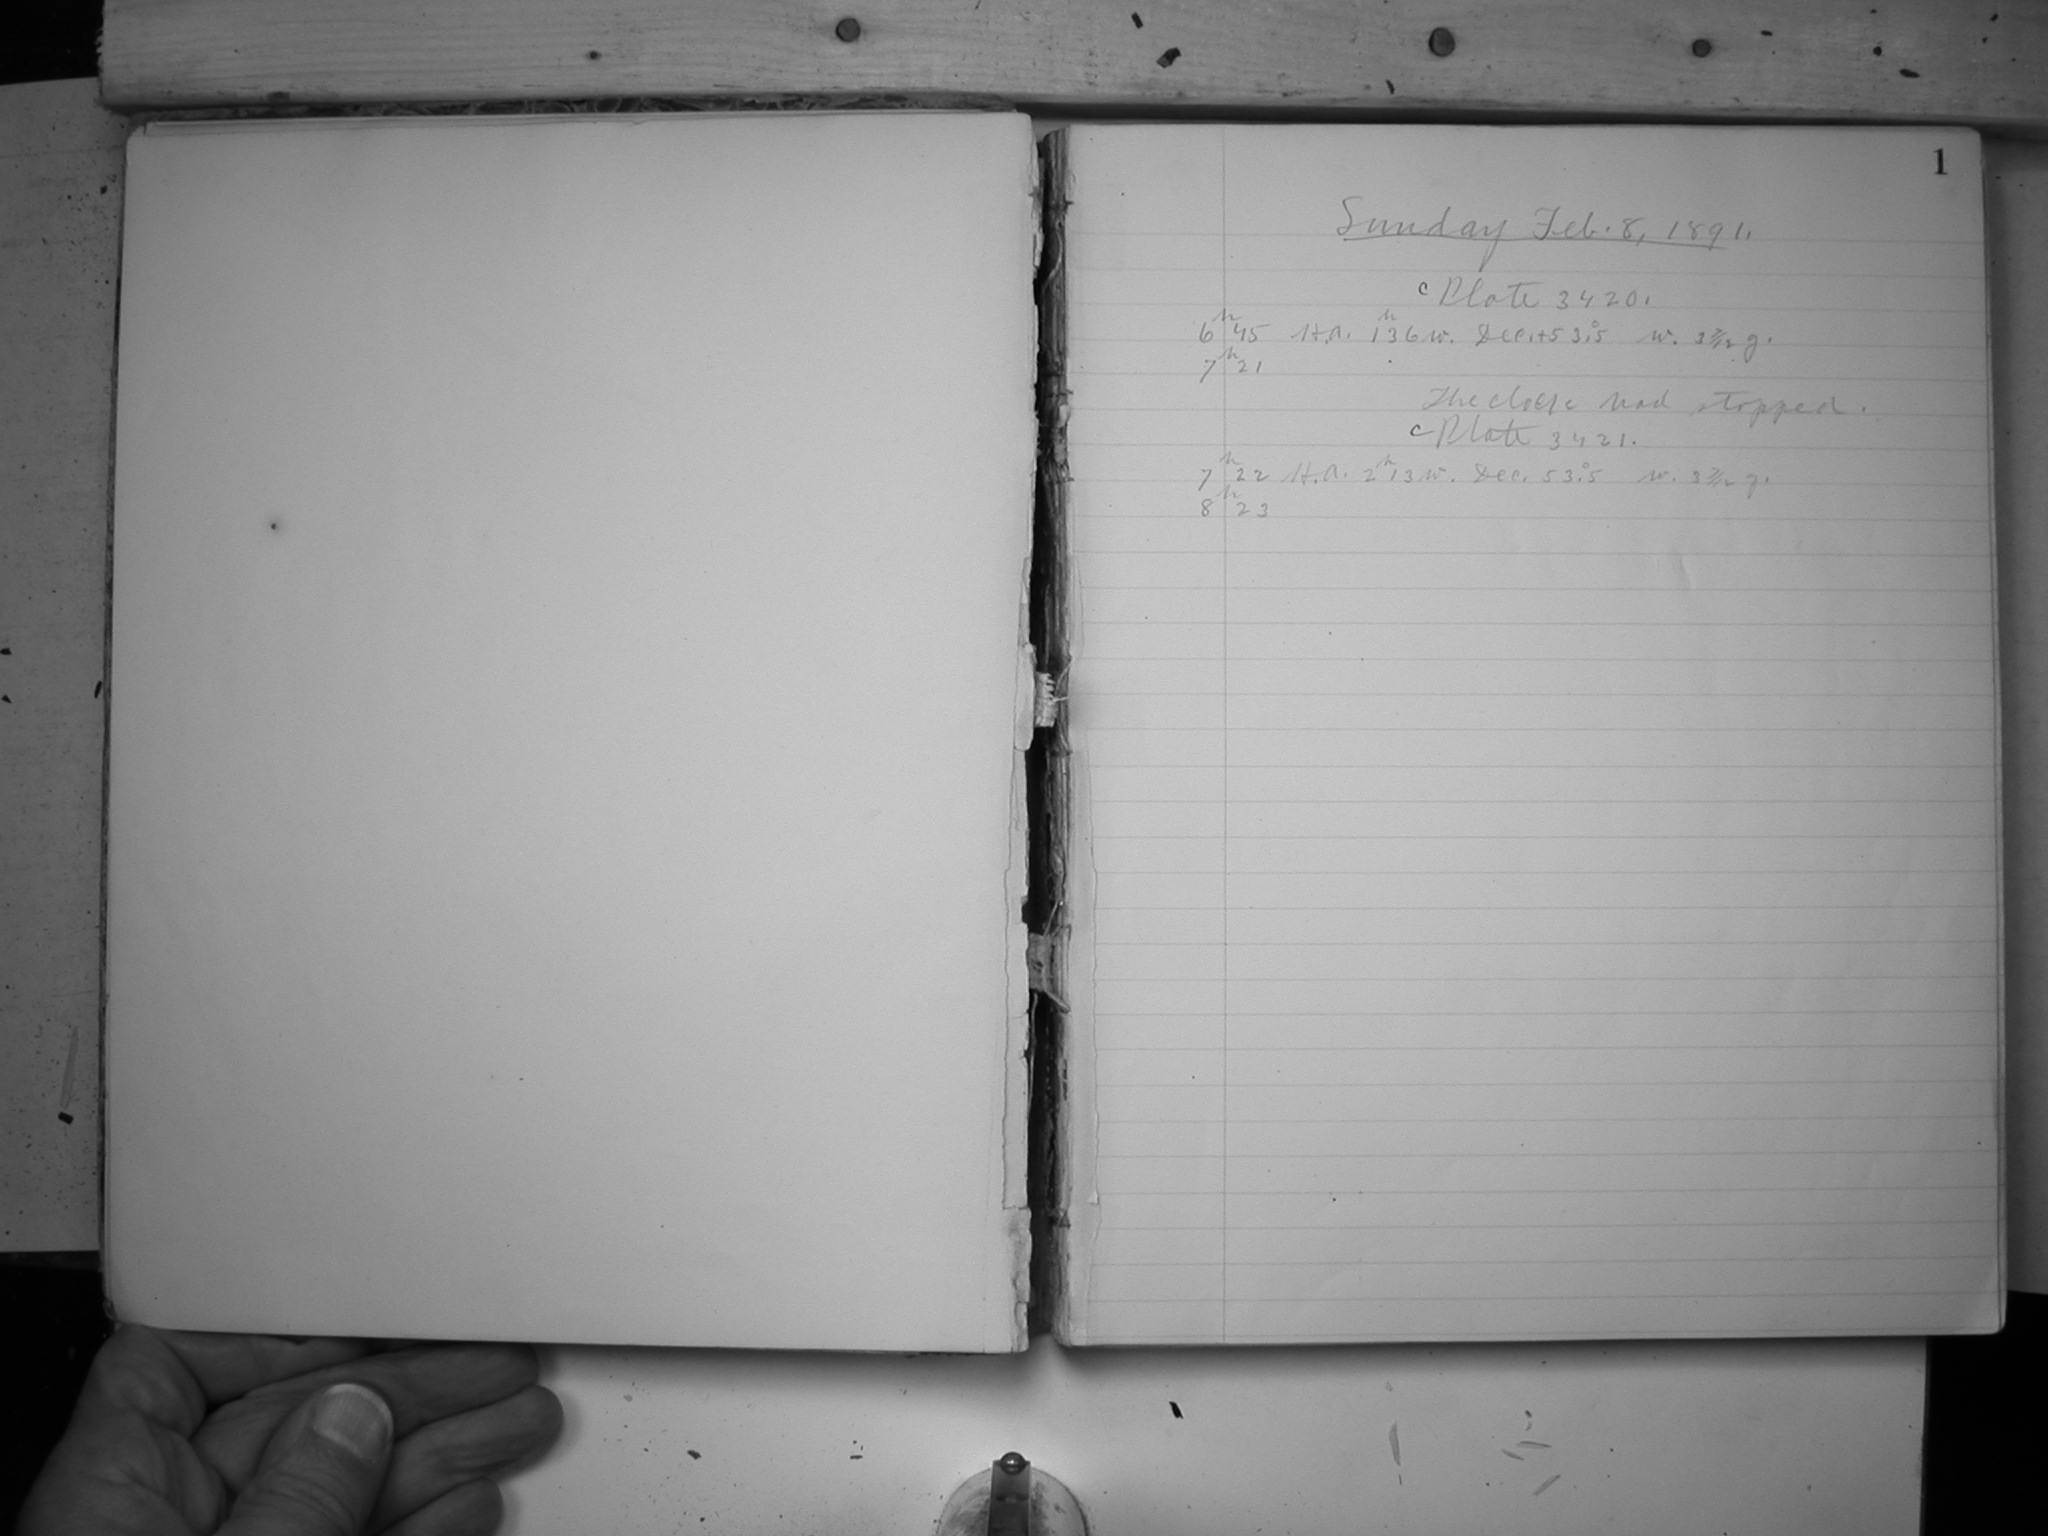 1
Sunday Feb. 8, 1891.
c Plate 3420.
6ʰ 45 H.A. 1ʰ36 w. Dec. +53°.5 w. g.
7ʰ 21
The clock had stopped.
c Plate 3421.
7ʰ 22 H.A. 2ʰ13 w. Dec. 53°.5 w. g.
8ʰ 23